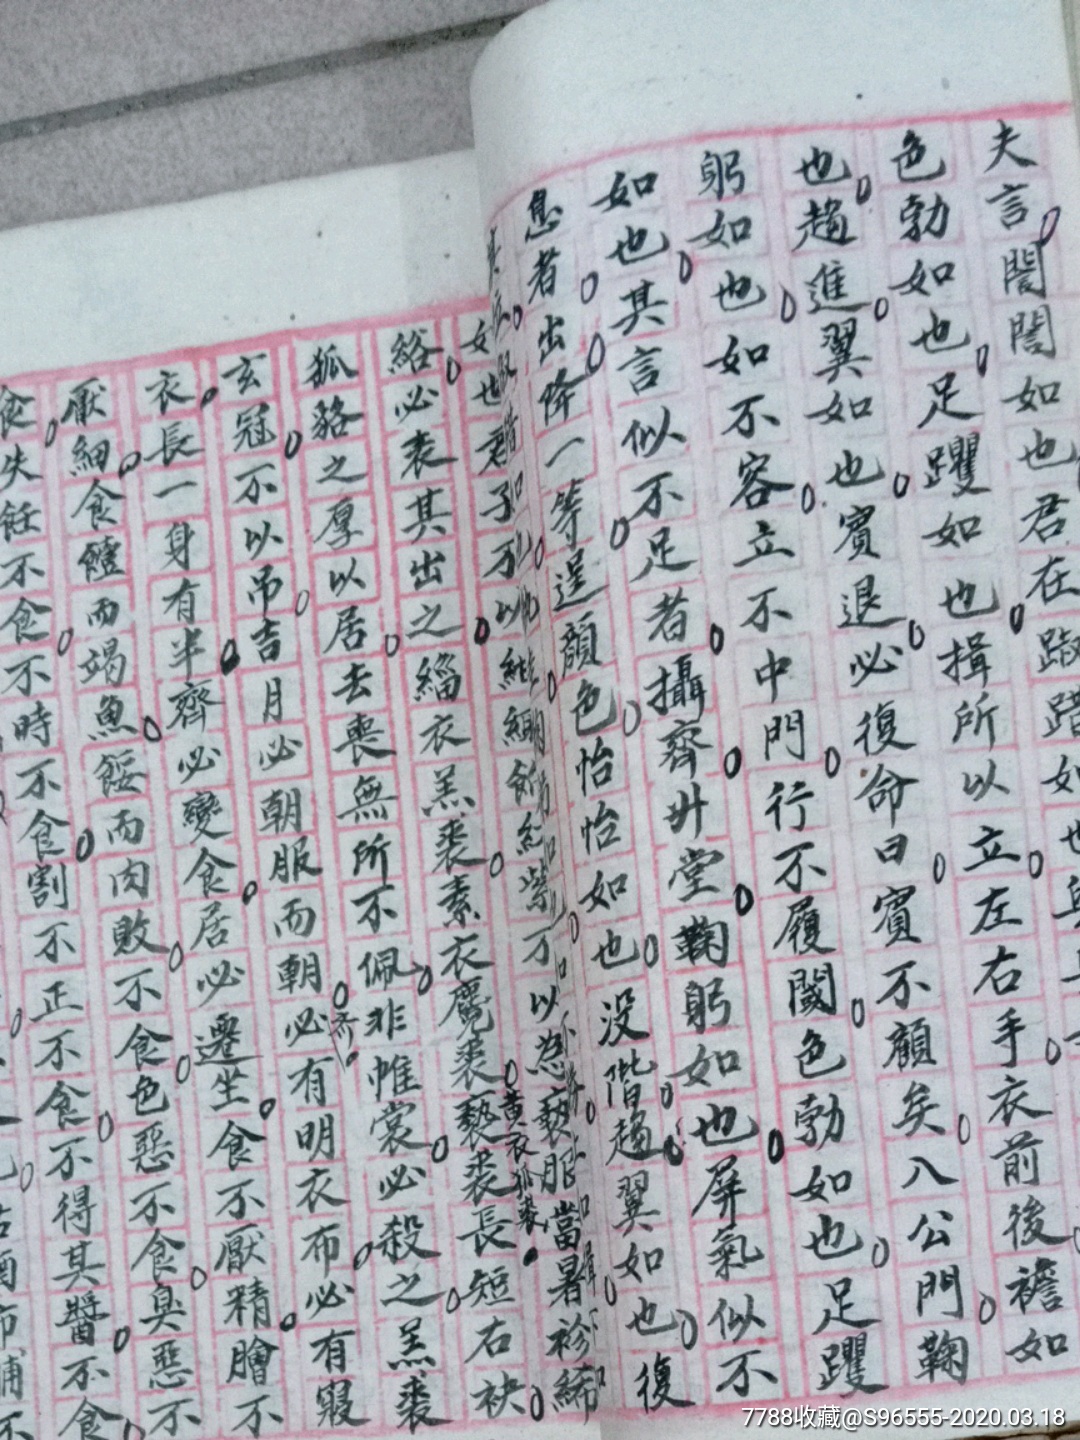 夫言誾誾如也君在踧踖如也與
色勃如也足躩如也揖所以立左右手衣前後襜如
也趨進翼如也賓退必復命曰賓不顧矣入公門鞠
躬如也如不容立不中門行不履閾色勃如也足躩
如也其言似不足者攝齊升堂鞠躬如也屏氣似不
息者出降一等逞顏色怡怡如也没階趨翼如也復
如也君子不以紺緅飾紅紫不以為褻服當暑袗絺
綌必表其出之緇衣羔裘素衣麑裘褻裘長短右袂
黄衣狐裘
狐貉之厚以居去喪無所不佩非帷裳必殺之羔裘
玄冠不以吊吉月必朝服而朝必有明衣布必有寢
齐
衣長一身有半齊必變食居必遷坐食不厭精膾不
厭細食饐而竭魚餒而肉敗不食色惡不食臭惡不
食失飪不食不時不食割不正不食不得其醬不食
7788收藏@S96555-2020.03.18